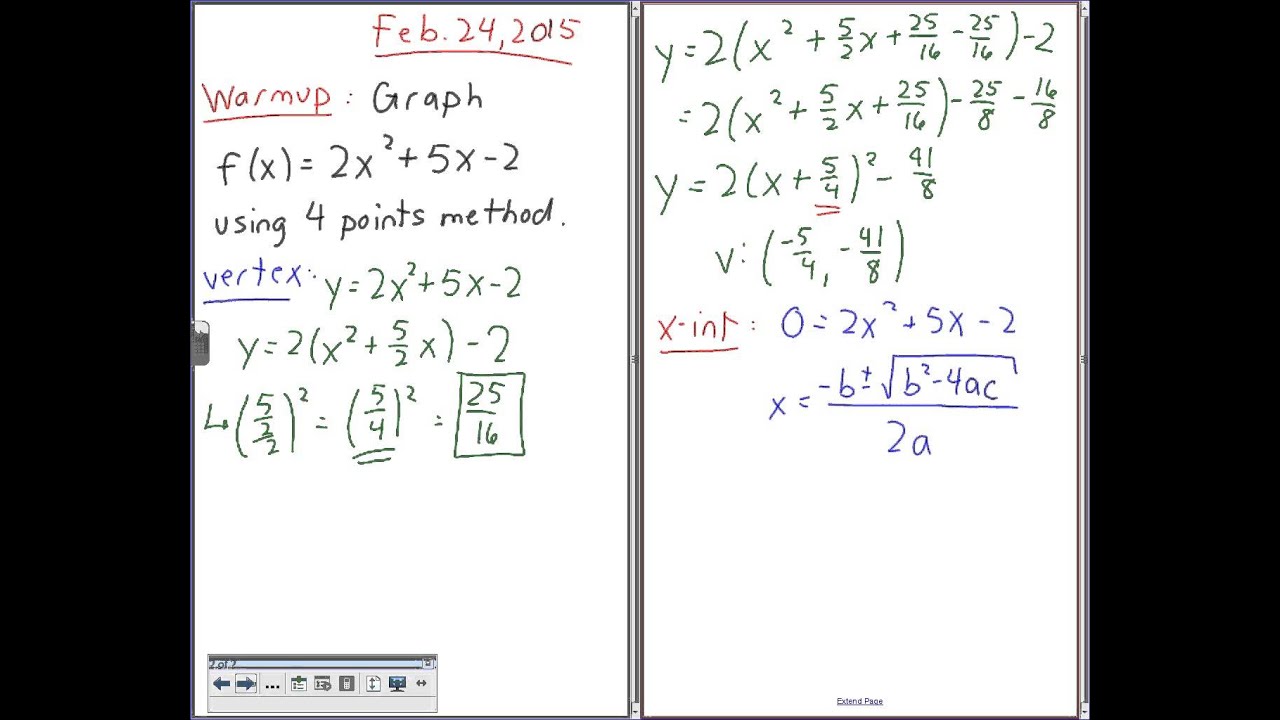 Feb. 24, 2015
Warmup: Graph
f(x) = 2x² + 5x - 2
using 4 points method.
vertex: y = 2x² + 5x - 2
y = 2(x² + 5/2 x) - 2
↳ (5/2/2)² = (5/4)² = 25/16
2 of 2
...
y = 2(x² + 5/2 x + 25/16 - 25/16) - 2
= 2(x² + 5/2 x + 25/16) - 25/8 - 16/8
y = 2(x + 5/4)² - 41/8
v: (-5/4, -41/8)
x-int: 0 = 2x² + 5x - 2
x = -b ± √b² - 4ac / 2a
Extend Page